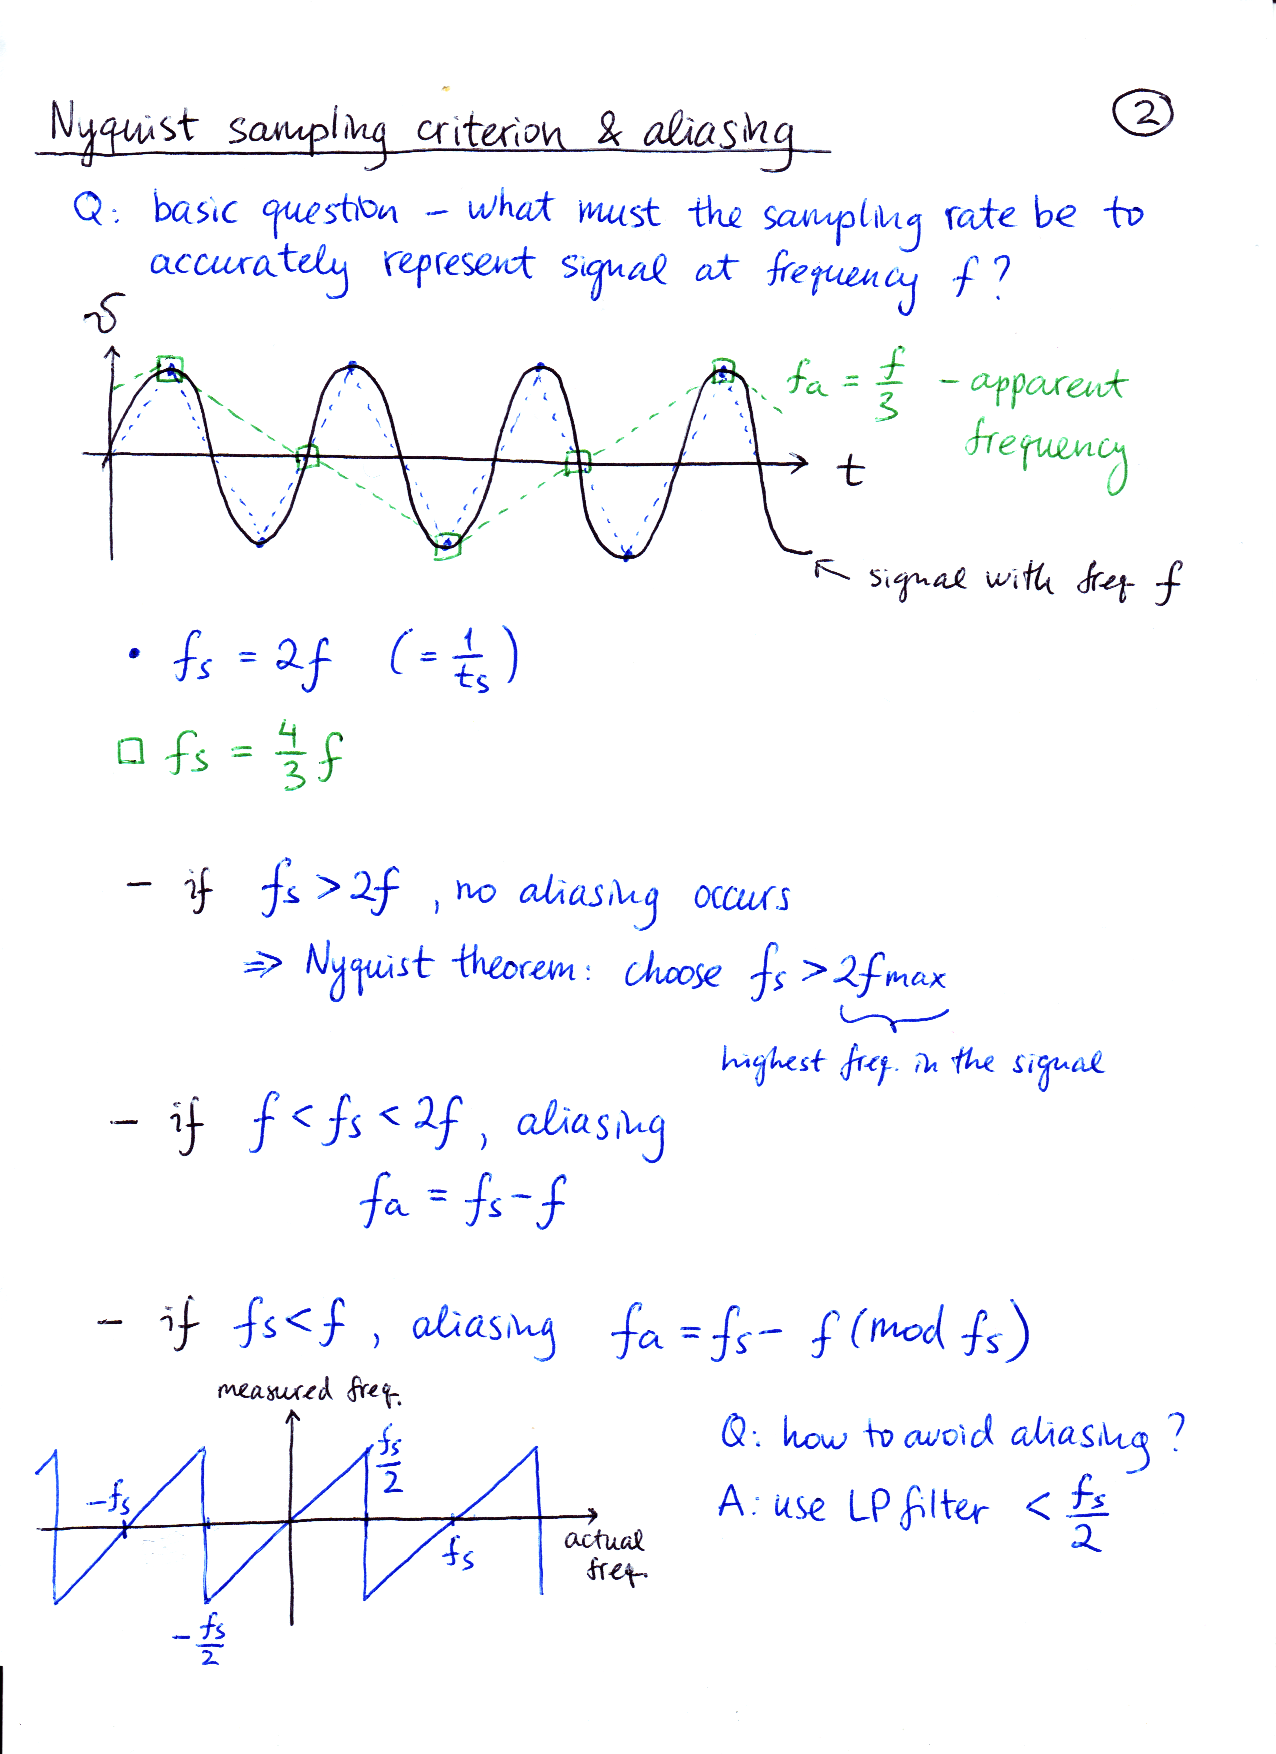 Nyquist sampling criterion & aliasing
②
Q: basic question – what must the sampling rate be to
accurately represent signal at frequency f?
v
fa = f/3 – apparent
frequency
t
signal with freq f
• fs = 2f (= 1/ts)
□ fs = 4/3 f
– if fs > 2f, no aliasing occurs
⇒ Nyquist theorem: choose fs > 2fmax
highest freq. in the signal
– if f < fs < 2f, aliasing
fa = fs – f
– if fs < f, aliasing fa = fs – f (mod fs)
measured freq.
fs/2
-fs
fs
actual
freq.
- fs/2
Q: how to avoid aliasing?
A: use LP filter < fs/2